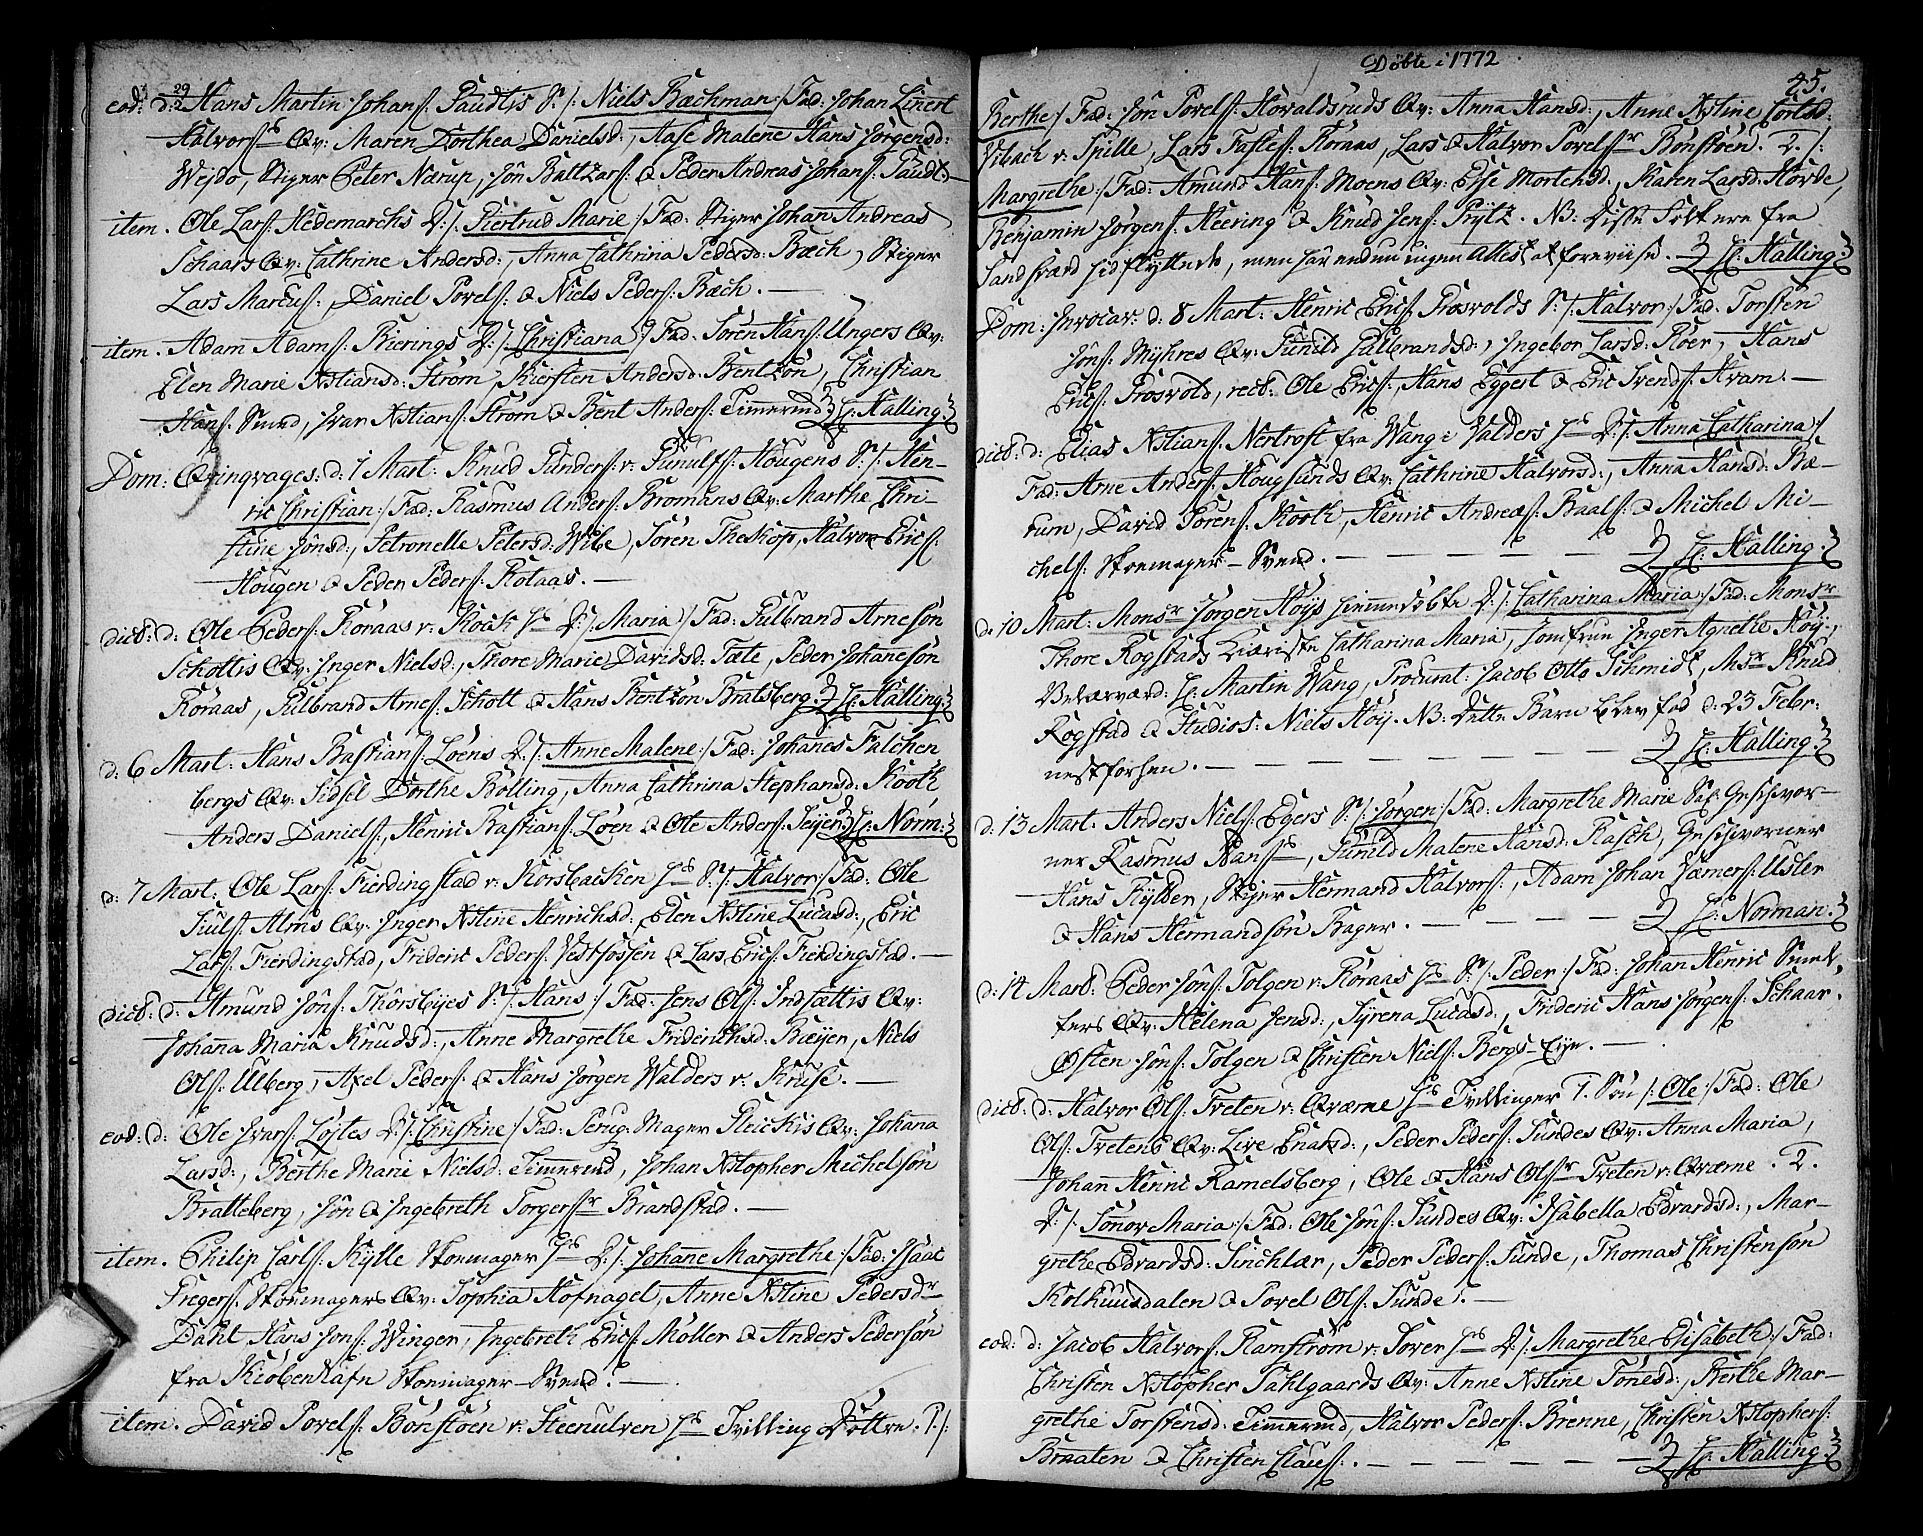 eod: d: 29/2 Hans Martin Johans: Paudtis S: /: Niels Bæchman :/ Fad: Johan Linert
Halvors: Qv: Maren Dorthea Danielsd:, Aase Malene Hans Jörgensd:
Wejdo, Stiger Peter Nærup, Jön Baltzars: & Peder Andreas Johans: Paudt –
item. Ole Lars: Hedemarchs D: /: Giertrud Marie :/ Fad: Stiger Johan Andreas
Schaars Qv: Cathrine Andersd:, Anna Cathrina Pedersd: Bæch, Stiger
Lars Marcus:, Daniel Povels: & Niels Peders: Bæch. —
item. Adam Adams: Bierings D: /: Christiana :/ Fad: Sören Hans: Ungers Qv:
Elen Marie Xstiansd: Ström, Kiersten Andersd: Bentzön, Christian
Hans: Smed, Ivar Xstians: Ström & Bent Anders: Timermd: H: Halling.
Dom: Qvinqvages: d: 1 Mart: Knud Gunders: v: Gunulfs: Hougens S: /: Hen–
ric Christian :/ Fad: Rasmus Anders: Bromans Qv: Marthe Chri–
stine Jönsd:, Petronelle Petersd: Wibe, Sören Theskop, Halvor Erics:
Hougen & Peder Peders: Kolaas. —
dict: d: Ole Peders: Koraas v: Kock hs D: /: Maria :/ Fad: Gulbrand Arnesön
Schottis Qv: Inger Nielsd:, Thore Marie Davidsd: Tæte, Peder Johanesön
Koraas, Gulbrand Arnes: Schott & Hans Bentzön Bratsberg. H: Halling.
d: 6 Mart: Hans Bastians: Löens D: /: Anne Malene :/ Fad: Johanes Falchen
bergs Qv: Sidsel Dorthe Bölling, Anna Cathrina Stephansd: Kooth
Anders Daniels:, Henric Bastians: Löen & Ole Anders: Seyer. H: Norm:
d: 7 Mart: Ole Lars: Fierdingstad v: Korsbacken hs S: /: Halvor :/ Fad: Ole
Juls: Alms Qv: Inger Xstine Henrichsd:, Elen Xstine Lucasd:, Eric
Lars: Fierdingstad, Frideric Peders: Vestfossen & Lars Erics: Fierdingstad. —
dict: d: Amund Jöns: Thorsbyes S: /: Hans :/ Fad: Jens Ols: Indsættis Qv:
Johana Maria Knudsd:, Anne Margrethe Friderichsd: Beyer, Niels
Ols: Ulberg, Axel Peders: & Hans Jörgen Walders v: Kruse. —
eod: d: Ole Ivars: Löstes D: /: Christine :/ Fad: Perug: Mager Gleickis Qv: Johana
Larsd:, Berthe Marie Nielsd: Timermd, Johan Xstopher Michelsön
Bratteberg, Jön & Ingebreth Torgerss: Brandstad. —
item. Philip Carls: Kylle Skomager hs D: /: Johane Margrethe :/ Fad: Isaac
Gregers: Skomagers Qv: Sophia Hofnagel, Anne Xstine Pedersdr
Dahl Hans Jons: Winger, Ingebreth Erics: Möller & Anders Pedersön
fra Kiöbenhafn Skomager-Svend. —
item. David Povels: Bönstöen v: Steenulven hs Tvilling Döttre. 1. /:
Döbte i 1772
45.
Berthe :/ Fad: Jön Povels: Hovaldsruds Qv: Anna Hansd:, Anne Xstine Cortsd:
Vibach v: Spille, Lars Fastes: Koraas, Lars & Halvor Povelss: Bönstöen. 2. /:
Margrethe :/ Fad: Amund Hans: Moens Qv: Else Mortensd:, Karen Larsd: Horde,
Benjamin Jörgens: Heering & Knud Jens: Prytz. NB: Disse Folk ere fra
Sandsværd hidflyttede, men har endnu ingen Attest at foreviise. H: Halling.
Dom: Invocav: d: 8 Mart: Henric Erics: Frosvolds S: /: Halvor :/ Fad: Torsten
Jöns: Myhres Qv: Gunild Gulbrandsd:, Ingebor Larsd: Köer, Hans
Erics: Frosvold, rect: Ole Erics:, Hans Eggert & Eric Svends: Kvam. —
dict: d: Elias Xstians: Nertrost fra Wang i Valders hs D: /: Anna Catharina :/
Fad: Arne Anders: Hougsunds Qv: Cathrine Halvorsd:, Anna Hansd: Bæ–
rum, David Sörens: Kooth, Henric Andreæs: Baals: & Michel Mi–
chels: Skomager-Svend. — H: Halling.
d: 10 Mart: Monsr Jörgen Höys hiemmedöbte D: /: Catharina Maria :/ Fad: Monsr
Thore Rogstads Kiæreste Catharina Maria, Jomfrue Inger Agnethe Höy,
Velærværd: H: Martin Wang, Procurat: Jacob Otto Schmidt, Msr Knud
Rogstad & Studios: Niels Höy. NB: Dette Barn blev fød d: 23 Febr:
nestforhen. — H: Halling.
d: 13 Mart: Anders Niels: Egers S: /: Jörgen :/ Fad: Margrethe Marie Sal: Geschvor–
ner Rasmus Hanss:, Gunild Malene Hansd: Rasch, Geschvorner
Hans Kylder, Stiger Hermand Halvors:, Adam Johan Hæmers: Usler
& Hans Hermandsön Bager. — H: Norman.
d: 14 Mart: Peder Jöns: Tolgen v: Koraas hs S: /: Peder :/ Fad: Johan Henric Smel–
ters Qv: Helena Jensd:, Syrena Lucasd:, Frideric Hans Jörgens: Schaar,
Østen Jöns: Tolgen & Christen Niels: Bergs-Eye. —
dict: d: Halvor Ols: Tveten v: Qværne hs Tvillinger 1. Sön /: Ole :/ Fad: Ole
Ols: Tvetens Qv: Live Enarsd:, Peder Peders: Sundes Qv: Anna Maria,
Johan Henric Ramelsberg, Ole & Hans Olss: Tveten v: Qværne. 2.
D: /: Sönov Maria :/ Fad: Ole Jöns: Sundes Qv: Isabella Edvardsd:, Mar–
grethe Edvardsd: Sinchlær, Peder Peders: Sunde, Thomas Christensön
Kolkuusdalen & Povel Ols: Sunde. —
eod: d: Jacob Halvors: Ramström v: Sover hs D: /: Margrethe Elisabeth :/ Fad:
Christen Xstopher Dahlgaards Qv: Anne Xstine Tönesd:, Berthe Mar–
grethe Torstensd: Timermd, Halvor Peders: Brenne, Christen Xstophers:
Braaten & Christen Claus:. — H: Halling.